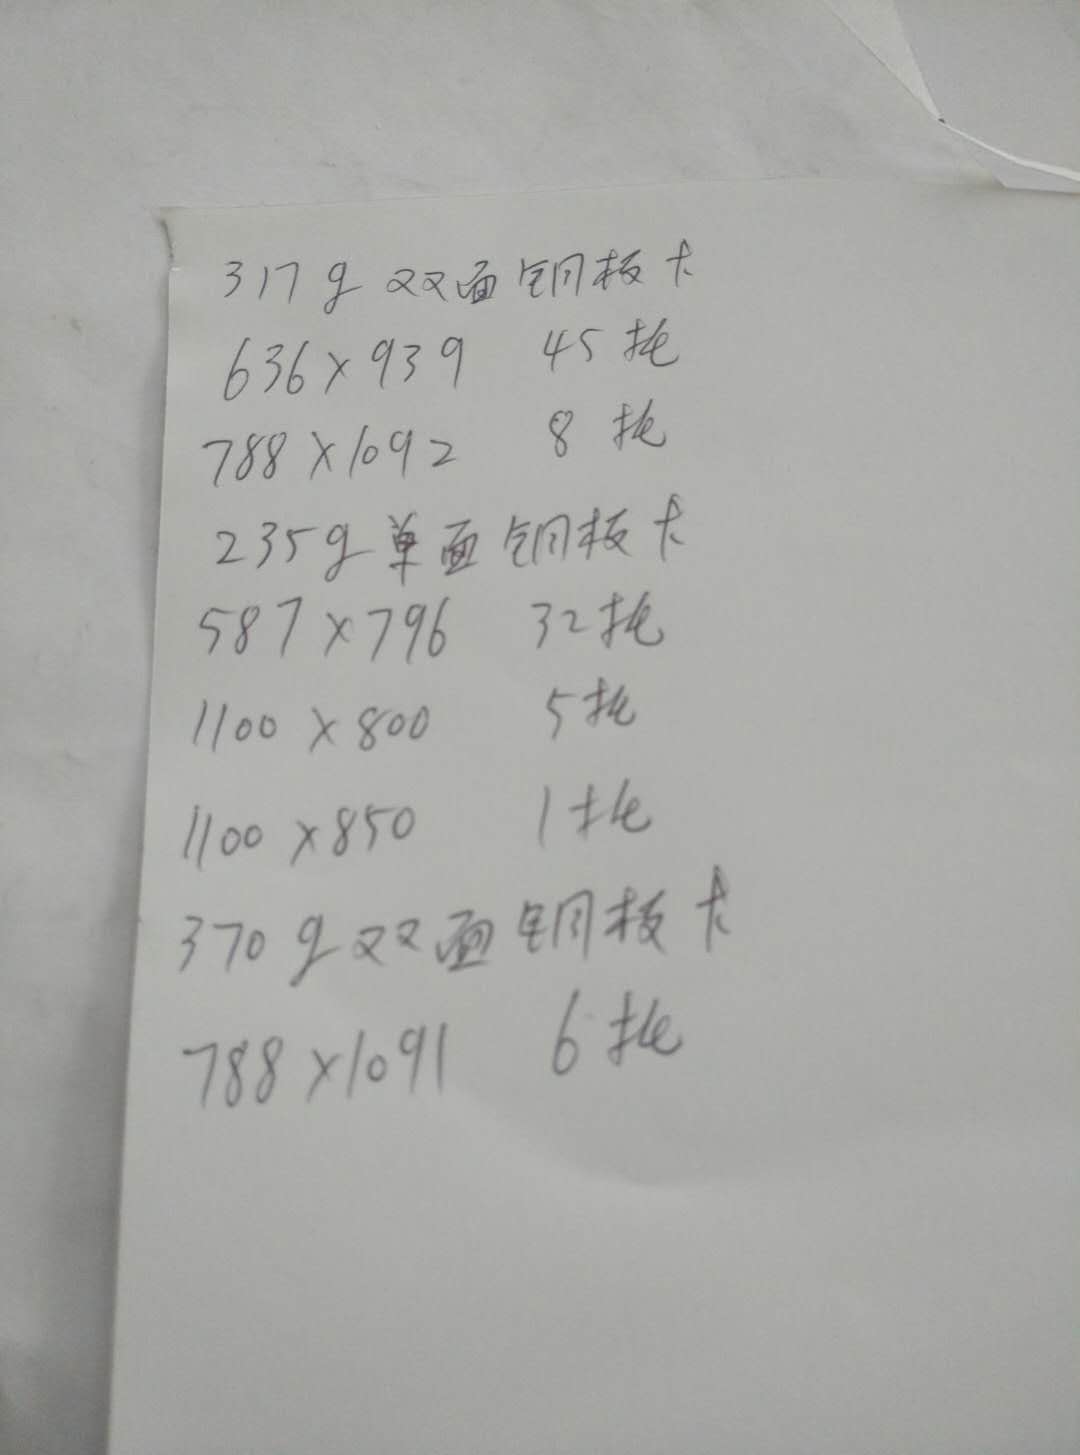 317g 双面铜板卡
636×939 45托
788×1092 8托
235g 单面铜板卡
587×796 32托
1100×800 5托
1100×850 1托
370g 双面铜板卡
788×1091 6托